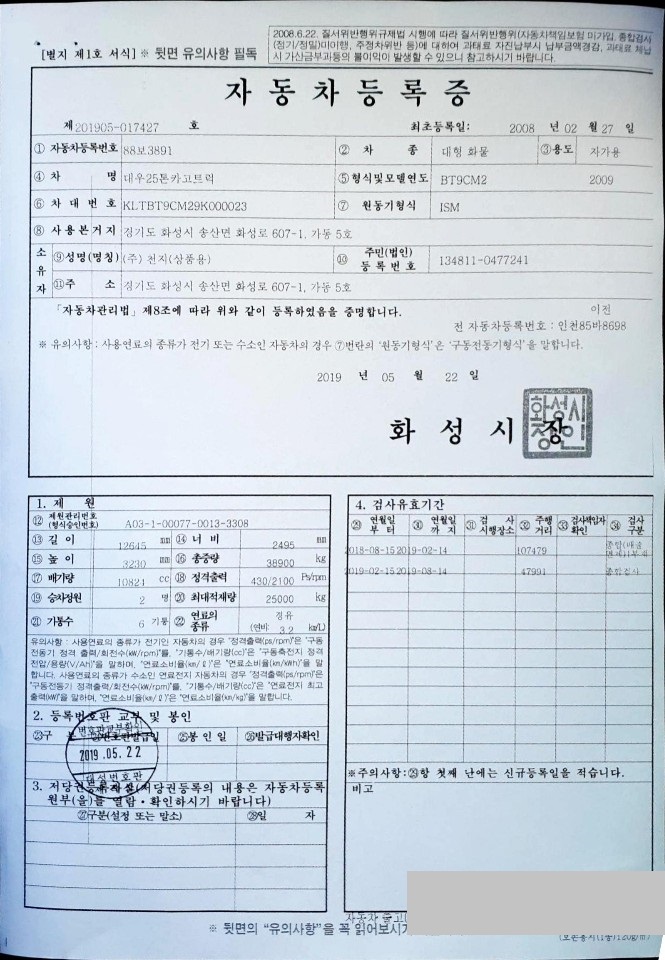 [별지 제1호 서식] ※ 뒷면 유의사항 필독
2008.6.22. 질서위반행위규제법 시행에 따라 질서위반행위(자동차책임보험 미가입, 종합검사
(정기/정밀)미이행, 주정차위반 등)에 대하여 과태료 자진납부시 납부금액경감, 과태료 체납
시 가산금부과등의 불이익이 발생할 수 있으니 참고하시기 바랍니다.
자동차등록증
제201905-017427 호 최초등록일: 2008 년 02 월 27 일
① 자동차등록번호 88보3891 ② 차 종 대형 화물 ③용도 자가용
④ 차 명 대우25톤카고트럭 ⑤형식및모델연도 BT9CM2 2009
⑥ 차 대 번 호 KLTBT9CM29K000023 ⑦ 원동기형식 ISM
⑧ 사 용 본 거 지 경기도 화성시 송산면 화성로 607-1, 가동 5호
소유자 ⑨성명(명칭) (주) 천지(상품용) ⑩ 주민(법인)등 록 번 호 134811-0477241
⑪주 소 경기도 화성시 송산면 화성로 607-1, 가동 5호
「자동차관리법」 제8조에 따라 위와 같이 등록하였음을 증명합니다. 이전
전 자동차등록번호 : 인천85바8698
※ 유의사항 : 사용연료의 종류가 전기 또는 수소인 자동차의 경우 ⑦번란의 '원동기형식'은 '구동전동기형식'을 말합니다.
2019 년 05 월 22 일
화 성 시 장
1. 제 원
⑫ 제원관리번호(형식승인번호) A03-1-00077-0013-3308
⑬ 길 이 12645 mm ⑭ 너 비 2495 mm
⑮ 높 이 3230 mm ⑯ 총중량 38900 kg
⑰ 배기량 10824 cc ⑱ 정격출력 430/2100 Ps/rpm
⑲ 승차정원 2 명 ⑳ 최대적재량 25000 kg
㉑ 기통수 6 기통 ㉒ 연료의 종류 경유 (연비: 3.2 km/L)
유의사항 : 사용연료의 종류가 전기인 자동차의 경우 "정격출력(ps/rpm)"은 "구동
전동기 정격 출력/회전수(kW/rpm)"를, "기통수/배기량(cc)"은 "구동축전지 정격
전압/용량(V/Ah)"을 말하며, "연료소비율(km/ℓ)"은 "연료소비율(km/kWh)"을 말
합니다. 사용연료의 종류가 수소인 연료전지 자동차의 경우 "정격출력(ps/rpm)"은
"구동전동기 정격출력/회전수(kW/rpm)"를, "기통수/배기량(cc)"은 "연료전지 최고
출력(kW)"을 말하며, "연료소비율(km/ℓ)"은 "연료소비율(km/kg)"을 말합니다.
2. 등록번호판 교부 및 봉인
㉓구 분 ㉔번호판발급일 ㉕봉 인 일 ㉖발급대행자확인
번호판교부확인
2019 .05. 22
화성번호판
3. 저당권등록사실(저당권등록의 내용은 자동차등록
원부(을)를 열람·확인하시기 바랍니다)
㉗구분(설정 또는 말소) ㉘일 자
4. 검사유효기간
㉙ 연월일부 터 ㉚ 연월일까 지 ㉛ 검 사시행장소 ㉜ 주행거리 ㉝ 검사책임자확인 ㉞ 검사구분
2018-08-15 2019-02-14 107479
2019-02-15 2019-08-14 47991 종합검사
※주의사항:㉙항 첫째 난에는 신규등록일을 적습니다.
비고
※ 뒷면의 "유의사항"을 꼭 읽어보시기